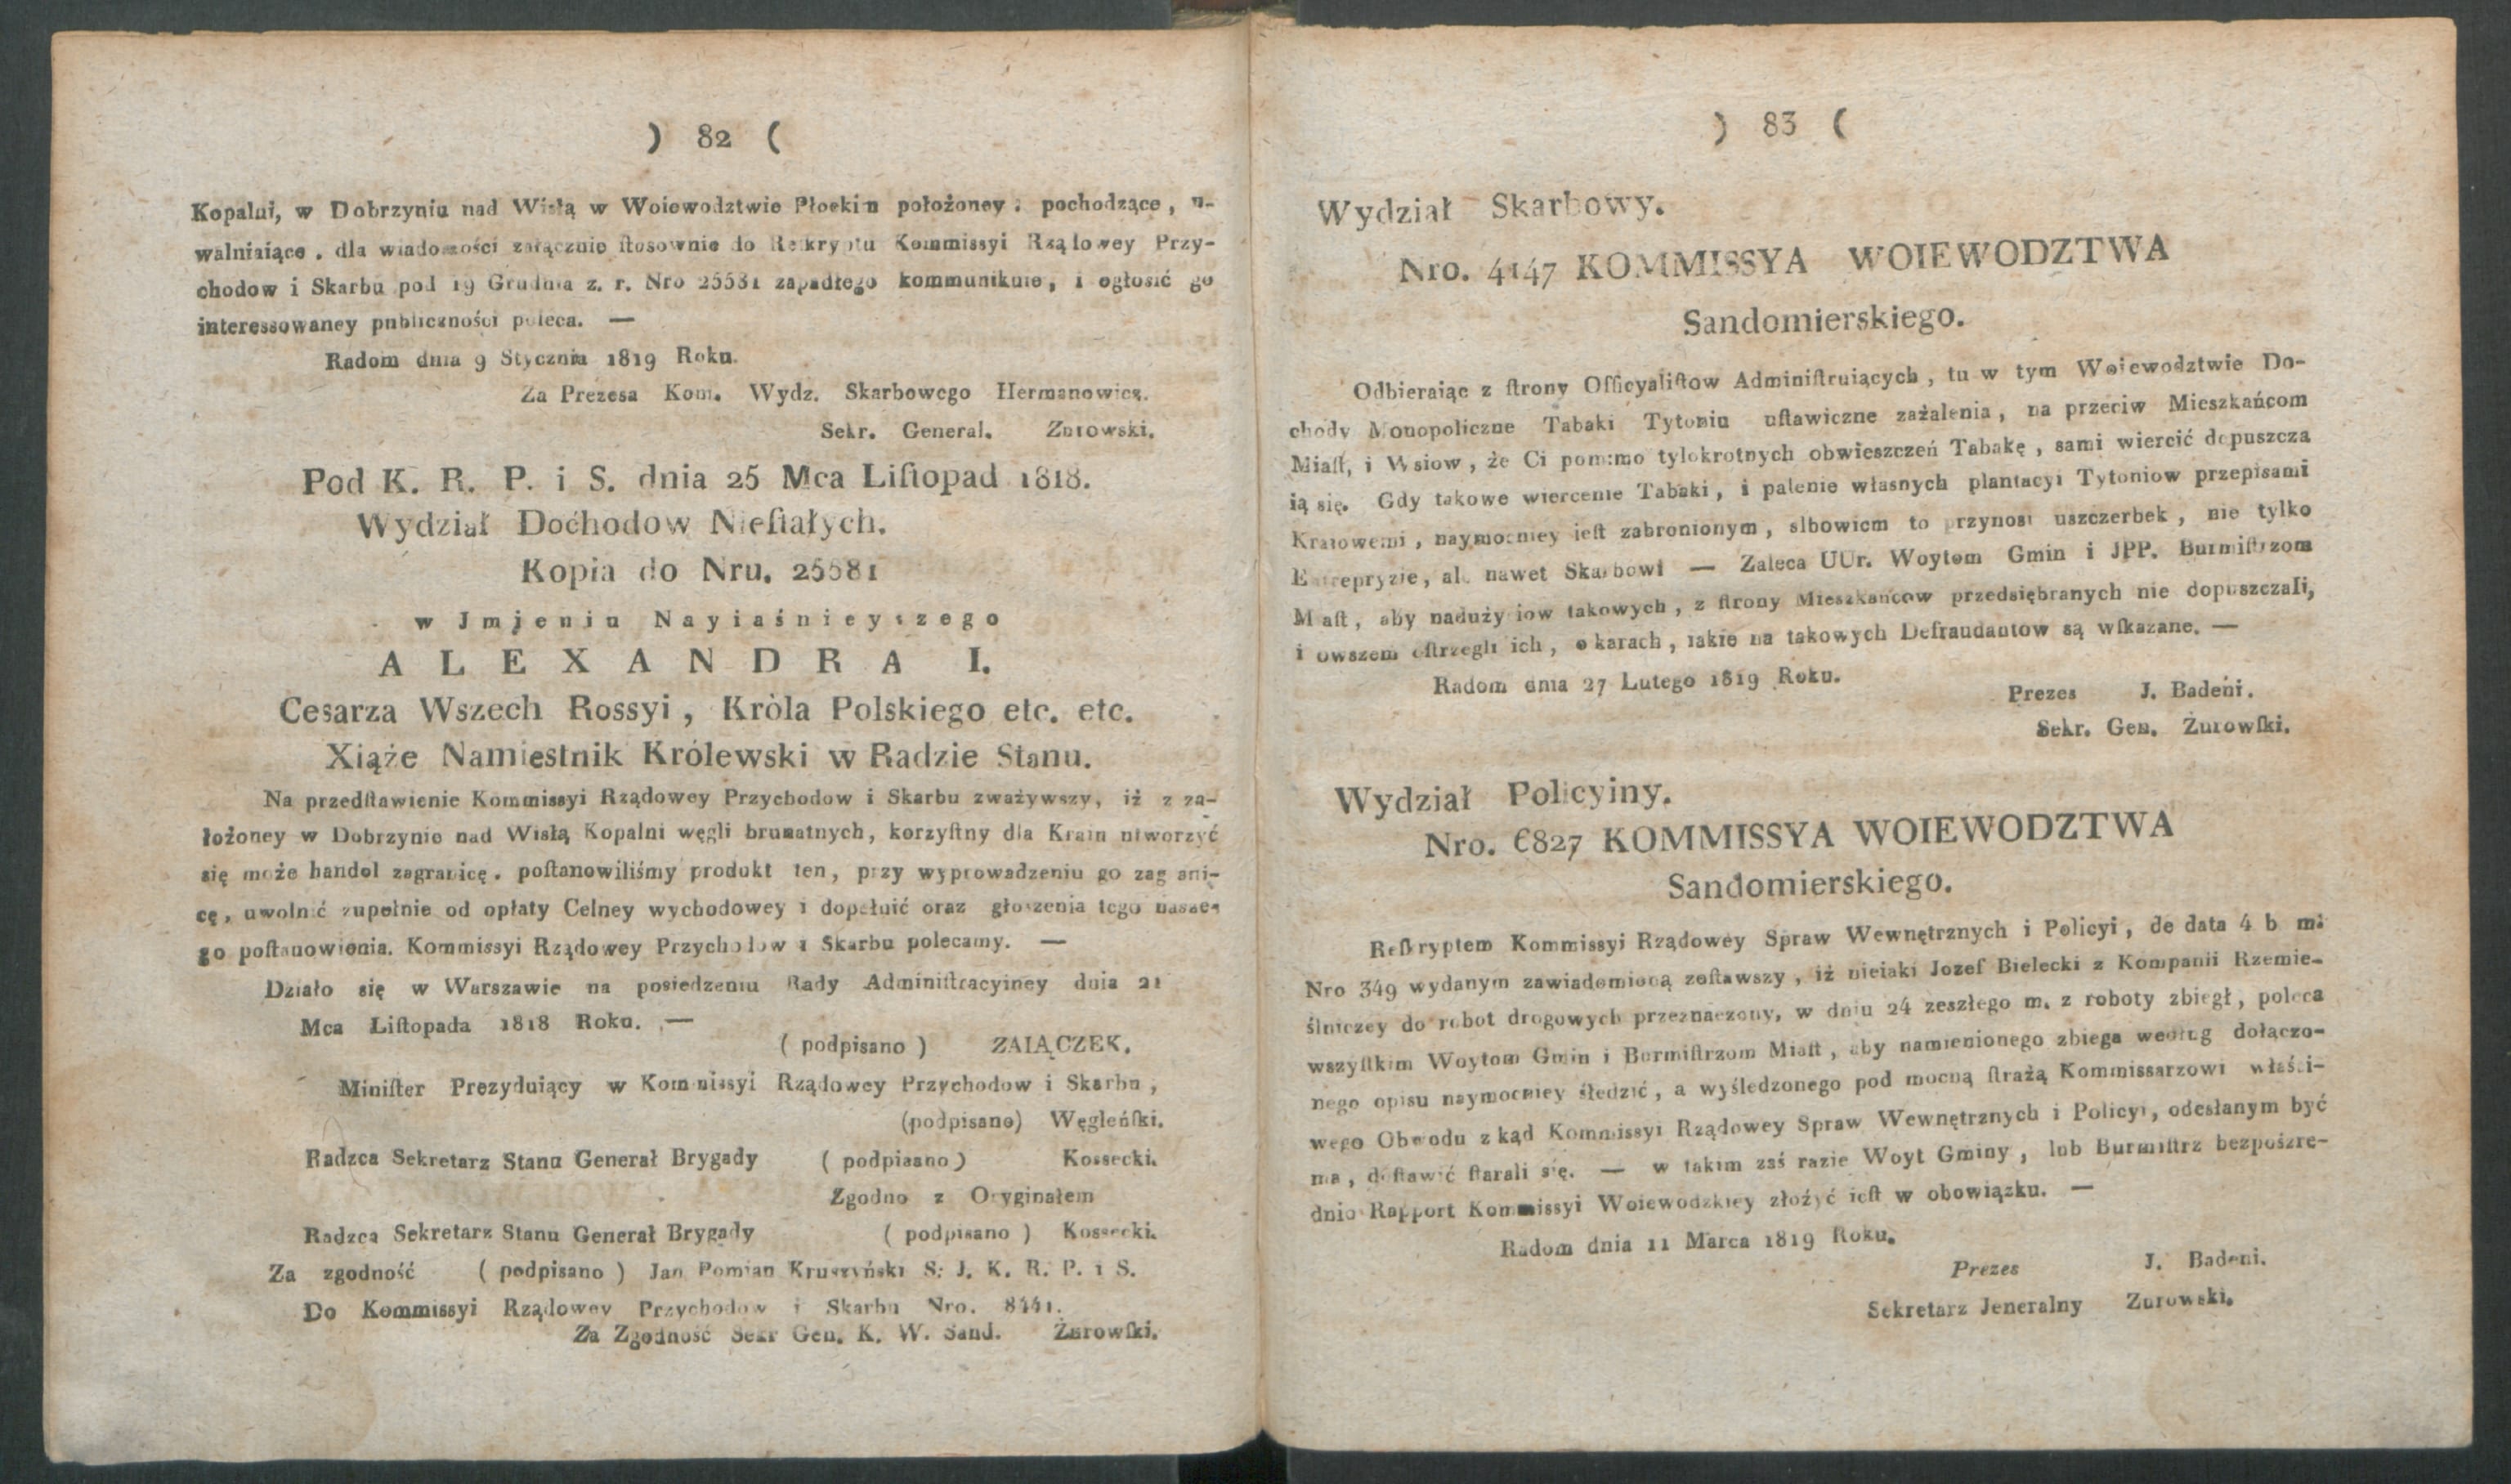 ) 82 (
Kopalni, w Dobrzyniu nad Wisłą w Woiewodztwie Płockim położoney, pochodzące, u-
walniaiące, dla wiadomości załącznie ſtosownie do Reskryptu Kommissyi Rządowey Przy-
chodow i Skarbu pod 19 Grudnia z. r. Nro 25581 zapadłego kommunikuie, i ogłosić go
interessowaney publiczności poleca. —
Radom dnia 9 Stycznia 1819 Roku.
Za Prezesa Kom. Wydz. Skarbowego Hermanowicz.
Sekr. General. Żurowski.
Pod K. R. P. i S. dnia 25 Mca Liſtopad 1818.
Wydział Dochodow Nieſtałych.
Kopia do Nru. 25581
w Jmjeniu Nayiaśnieyszego
ALEXANDRA I.
Cesarza Wszech Rossyi, Króla Polskiego etc. etc.
Xiąże Namiestnik Królewski w Radzie Stanu.
Na przedſtawienie Kommissyi Rządowey Przychodow i Skarbu zważywszy, iż z za-
łożoney w Dobrzynie nad Wisłą Kopalni węgli brunatnych, korzyſtny dla Kraiu utworzyć
się może handel zagranicę, poſtanowiliśmy produkt ten, przy wyprowadzeniu go zagrani-
cę, uwolnić zupełnie od opłaty Celney wychodowey i dopełnić oraz głoszenia tego nasze-
go poſtanowienia. Kommissyi Rządowey Przychodow i Skarbu polecamy. —
Działo się w Warszawie na posiedzeniu Rady Adminiſtracyiney dnia 21
Mca Liſtopada 1818 Roku. —
( podpisano ) ZAIĄCZEK.
Miniſter Prezyduiący w Kommissyi Rządowey Przychodow i Skarbu,
(podpisano) Węgleńſki.
Radzca Sekretarz Stanu Generał Brygady ( podpisano ) Kossecki.
Zgodno z Oryginałem
Radzca Sekretarz Stanu Generał Brygady ( podpisano ) Kossecki.
Za zgodność ( podpisano ) Jan Pomian Kruszyński S: J. K. R. P. i S.
Do Kommissyi Rządowey Przychodow i Skarbu Nro. 8441.
Za Zgodność Sekr Gen. K. W. Sand. Żurowſki.
) 83 (
Wydział Skarbowy.
Nro. 4147 KOMMISSYA WOIEWODZTWA
Sandomierskiego.
Odbieraiąc z ſtrony Officyaliſtow Adminiſtruiących, tu w tym Woiewodztwie Do-
chody Monopoliczne Tabaki Tytoniu uſtawiczne zażalenia, na przeciw Mieszkańcom
Miaſt, i Wsiow, że Ci pomimo tylokrotnych obwieszczeń Tabakę, sami wiercić dopuszcza
ią się. Gdy takowe wiercenie Tabaki, i palenie własnych plantacyi Tytoniow przepisami
Kraiowemi, naymocniey ieſt zabronionym, albowiem to przynosi uszczerbek, nie tylko
Entrepryzie, ale nawet Skarbowi — Zaleca UUr. Woytom Gmin i JPP. Burmiſtrzom
Miaſt, aby nadużyciow takowych, z ſtrony Mieszkańcow przedsiębranych nie dopuszczali,
i owszem oſtrzegli ich, o karach, iakie na takowych Defraudantow są wſkazane. —
Radom dnia 27 Lutego 1819 Roku.
Prezes J. Badeni.
Sekr. Gen. Żurowſki.
Wydział Policyiny.
Nro. 6827 KOMMISSYA WOIEWODZTWA
Sandomierskiego.
Reſkryptem Kommissyi Rządowey Spraw Wewnętrznych i Policyi, de data 4 b m:
Nro 349 wydanym zawiadomioną zoſtawszy, iż nieiaki Jozef Bielecki z Kompanii Rzemie-
ślniczey do robot drogowych przeznaczony, w dniu 24 zeszłego m. z roboty zbiegł, poleca
wszyſtkim Woytom Gmin i Burmiſtrzom Miaſt, aby namienionego zbiega według dołączo-
nego opisu naymocniey śledzić, a wyśledzonego pod mocną ſtrażą Kommissarzowi właści-
wego Obwodu zkąd Kommissyi Rządowey Spraw Wewnętrznych i Policyi, odesłanym być
ma, doſtawić ſtarali się. — w takim zaś razie Woyt Gminy, lub Burmiſtrz bezpośzre-
dnio Rapport Kommissyi Woiewodzkiey złożyć ieſt w obowiązku. —
Radom dnia 11 Marca 1819 Roku.
Prezes J. Badeni.
Sekretarz Jeneralny Żurowski.